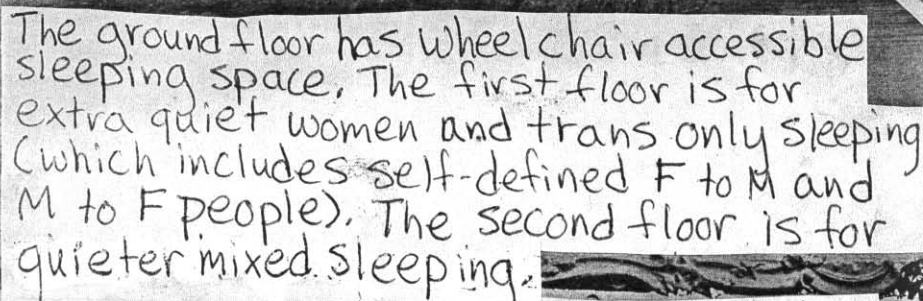 The ground floor has wheelchair accessible
sleeping space. The first floor is for
extra quiet women and trans only sleeping
(which includes self-defined F to M and
M to F people). The second floor is for
quieter mixed sleeping.